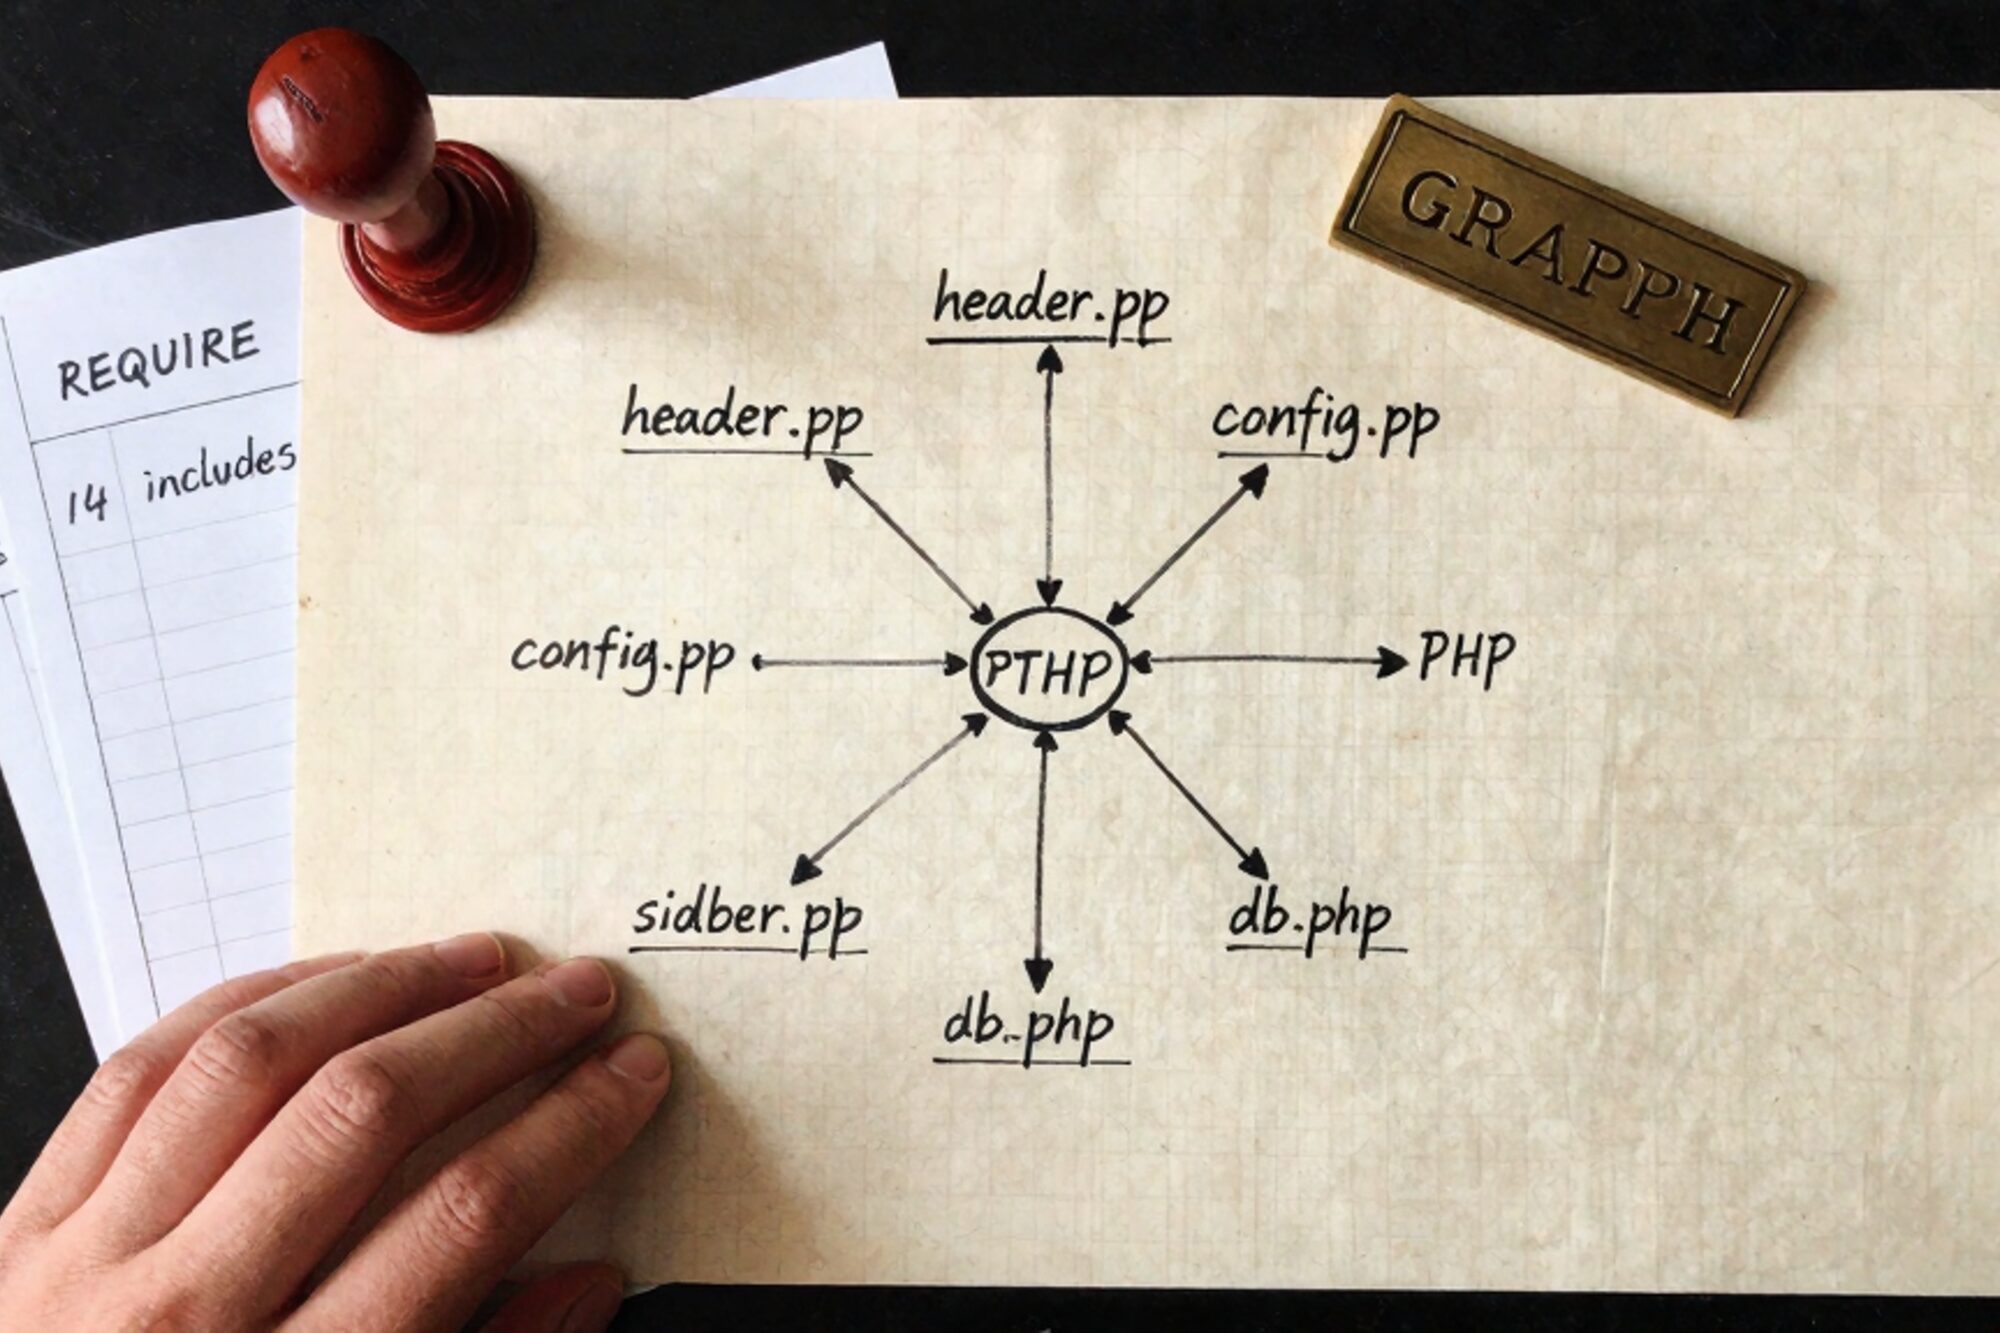 GRAPPH
REQUIRE
14 includes
header.pp
header.pp
config.pp
config.pp
PTHP
PHP
sidber.pp
db.php
db.-php